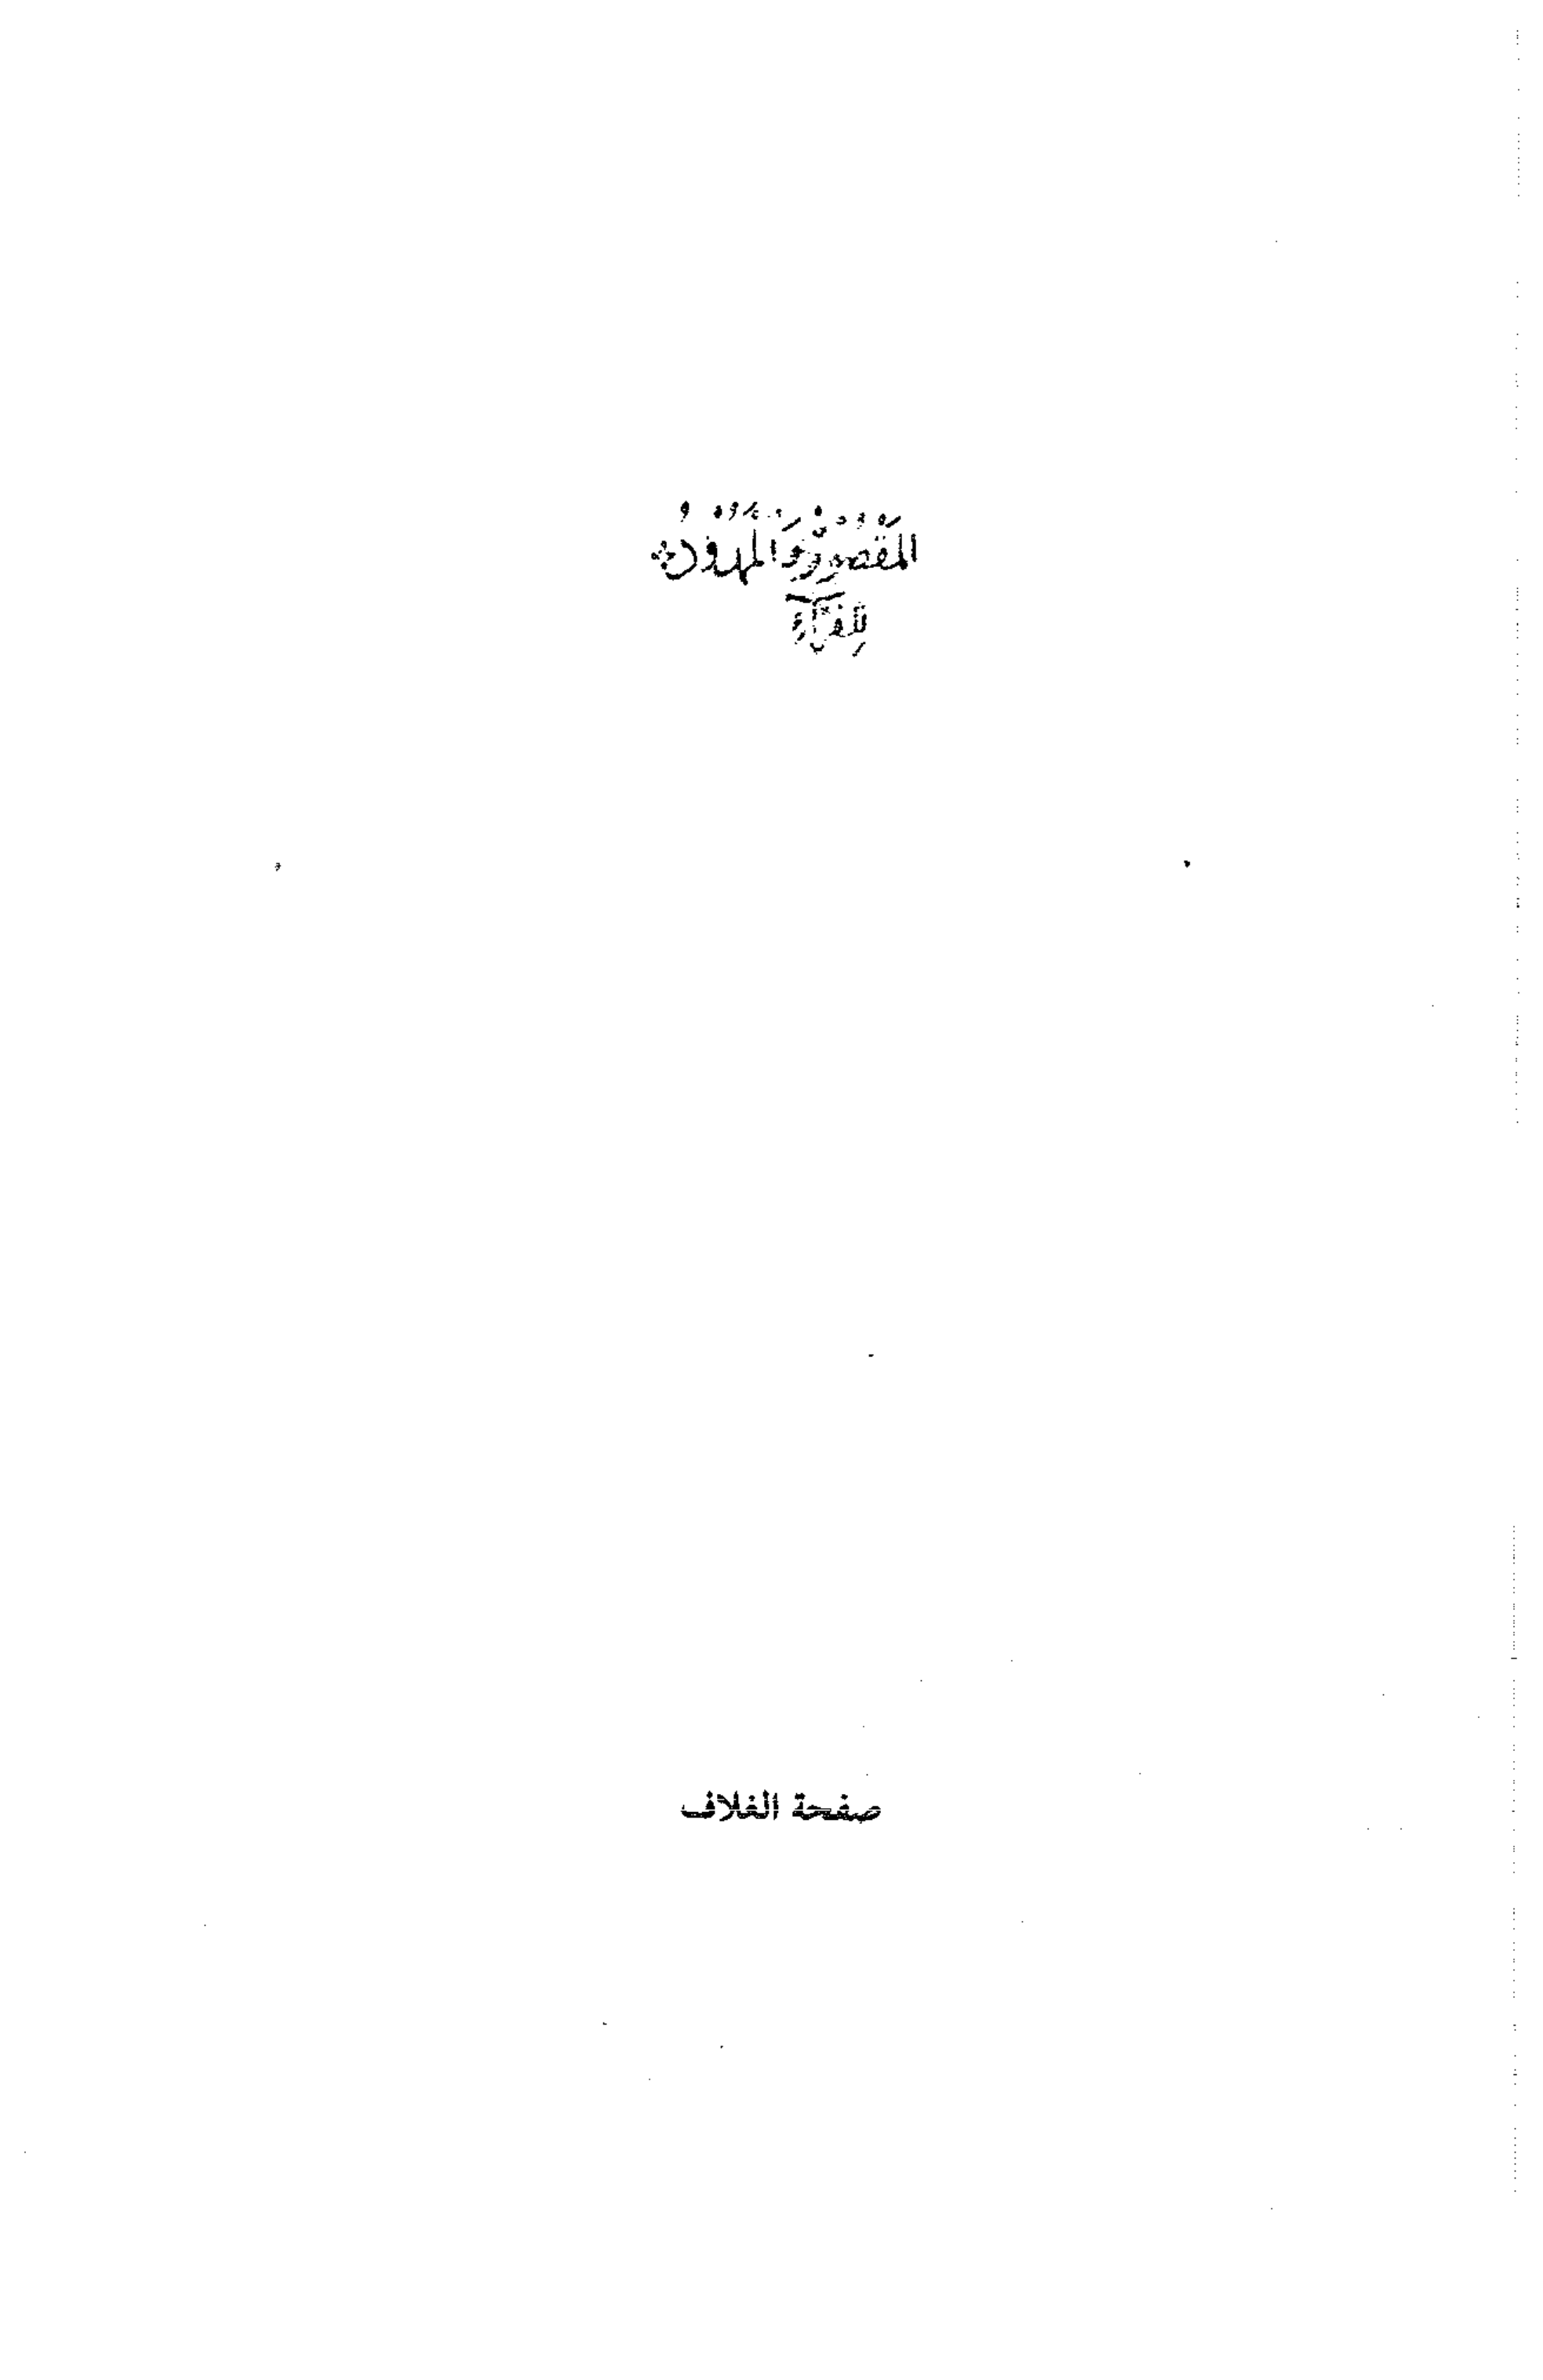 المَقْصُورُ وَالمَمْدُودُ
لِلفَرَّاءِ
صفحة الغلاف